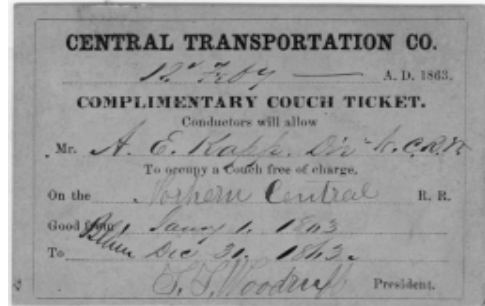 CENTRAL TRANSPORTATION CO.
12" Feby — A. D. 1863.
COMPLIMENTARY COUCH TICKET.
Conductors will allow
Mr. A. E. Kapp. Dir N. C. R. R.
To occupy a Couch free of charge.
On the Northern Central R. R.
Good from Jany 1. 1863
To Dec 31. 1863.
T. T. Woodruff President.